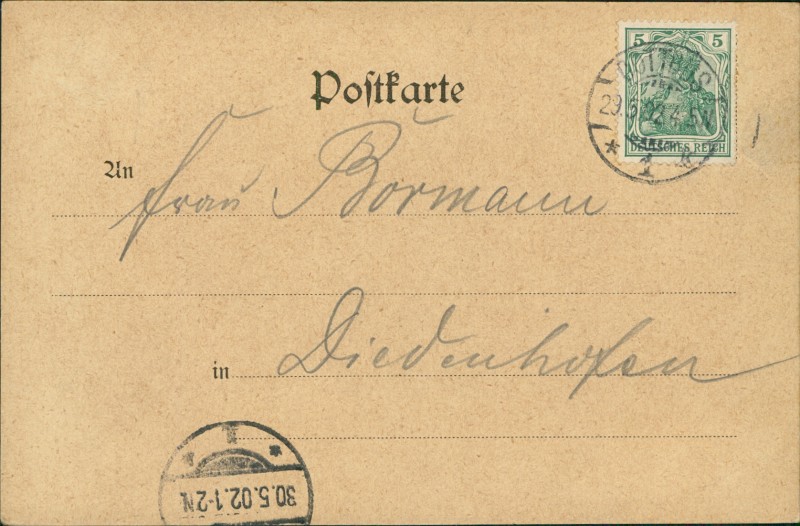 Postkarte
5 5
COTTBUS
29.5.02.4-5N
* 1 *
DEUTSCHES REICH
An Frau Bormann
in Diedenhofen
30.5.02.1-2N